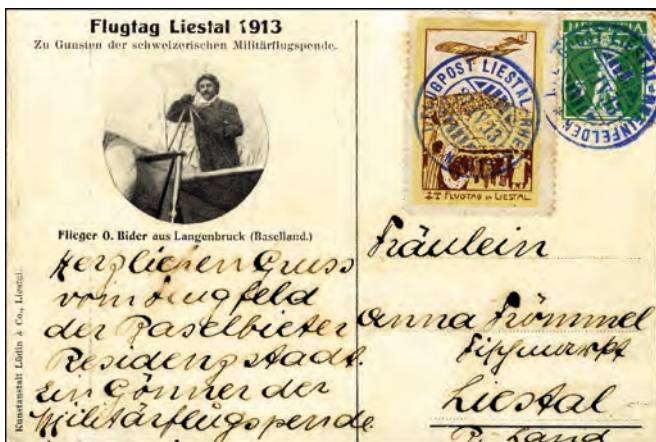 Flugtag Liestal 1913
Zu Gunsten der schweizerischen Militärflugspende.
Flieger O. Bider aus Langenbruck (Baselland.)
Kunstanstalt Lüdin & Co., Liestal.
Herzlichen Gruss
vom Flugfeld
der Baselbieter
Residenzstadt.
Ein Gönner der
Militärflugspende
HELVETIA
FLUGPOST LIESTAL-RHEINFELDEN
I. FLUGTAG IN LIESTAL
FLUGPOST LIESTAL-RHEINFELDEN
Fräulein
Anna Frömmel
Fischmarkt
Liestal
B. Land